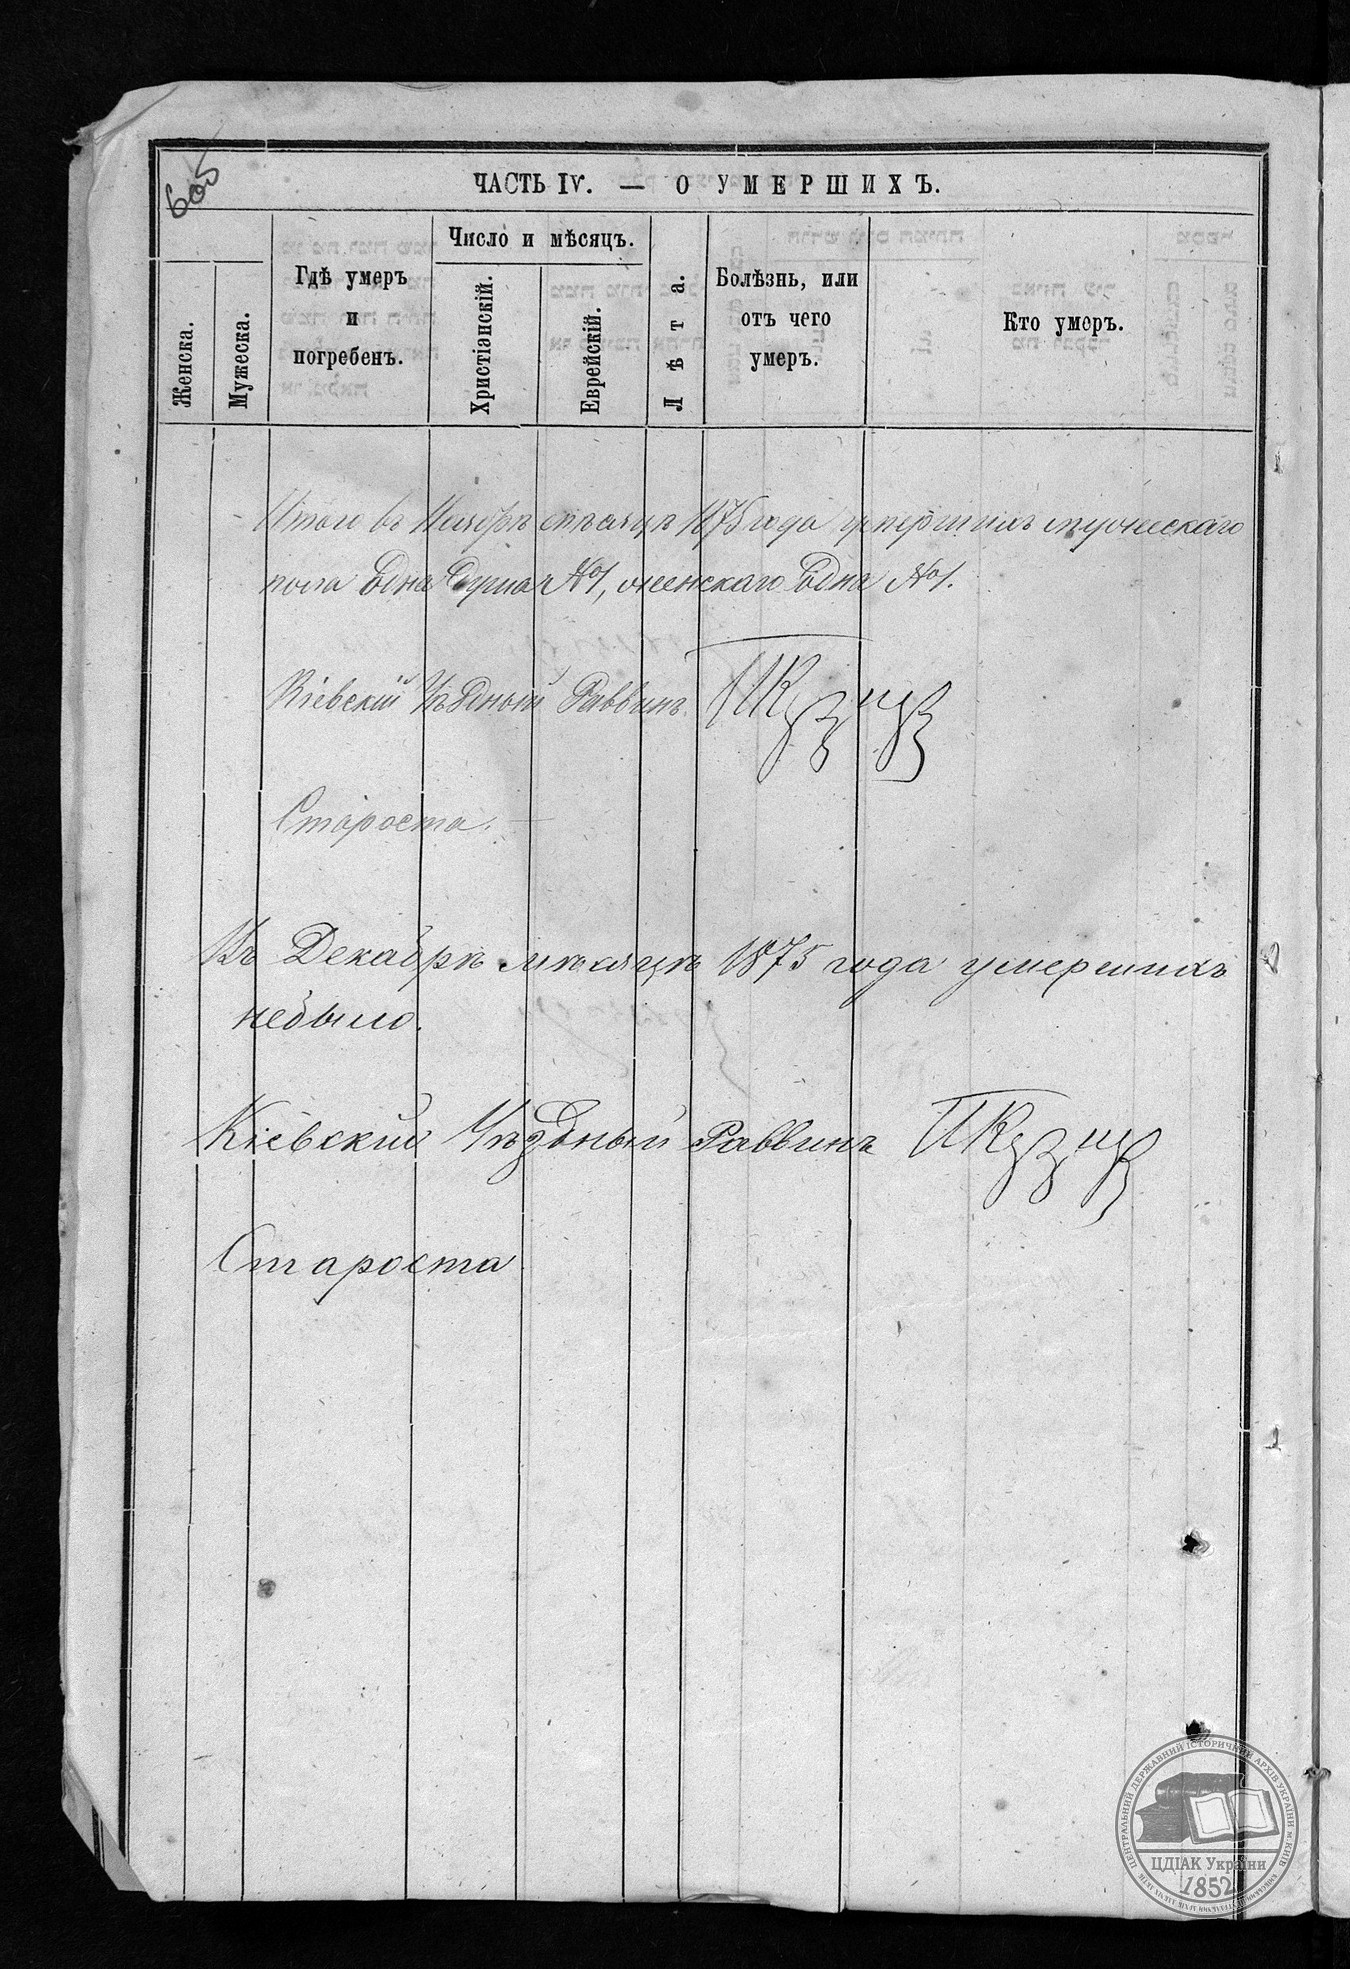 605
ЧАСТЬ IV. — О УМЕРШИХЪ.
Женска.
Мужеска.
Гдѣ умеръ
и
погребенъ.
Число и мѣсяцъ.
Христіанскій.
Еврейскій.
Лѣта.
Болѣзнь, или
отъ чего
умеръ.
Кто умеръ.
Итого въ Ноябрѣ мѣсяцѣ 1875 года умершихъ мужескаго
пола одна душа №1, женскаго одна №1.
Кіевскій Уѣздный Раввинъ
Староста.
Въ Декабрѣ мѣсяцѣ 1875 года умершихъ
небыло.
Кіевский Уѣздный Раввинъ
Староста
ЦЕНТРАЛЬНИЙ ДЕРЖАВНИЙ ІСТОРИЧНИЙ АРХІВ УКРАЇНИ м. КИЇВ
ЦДІАК України
1852